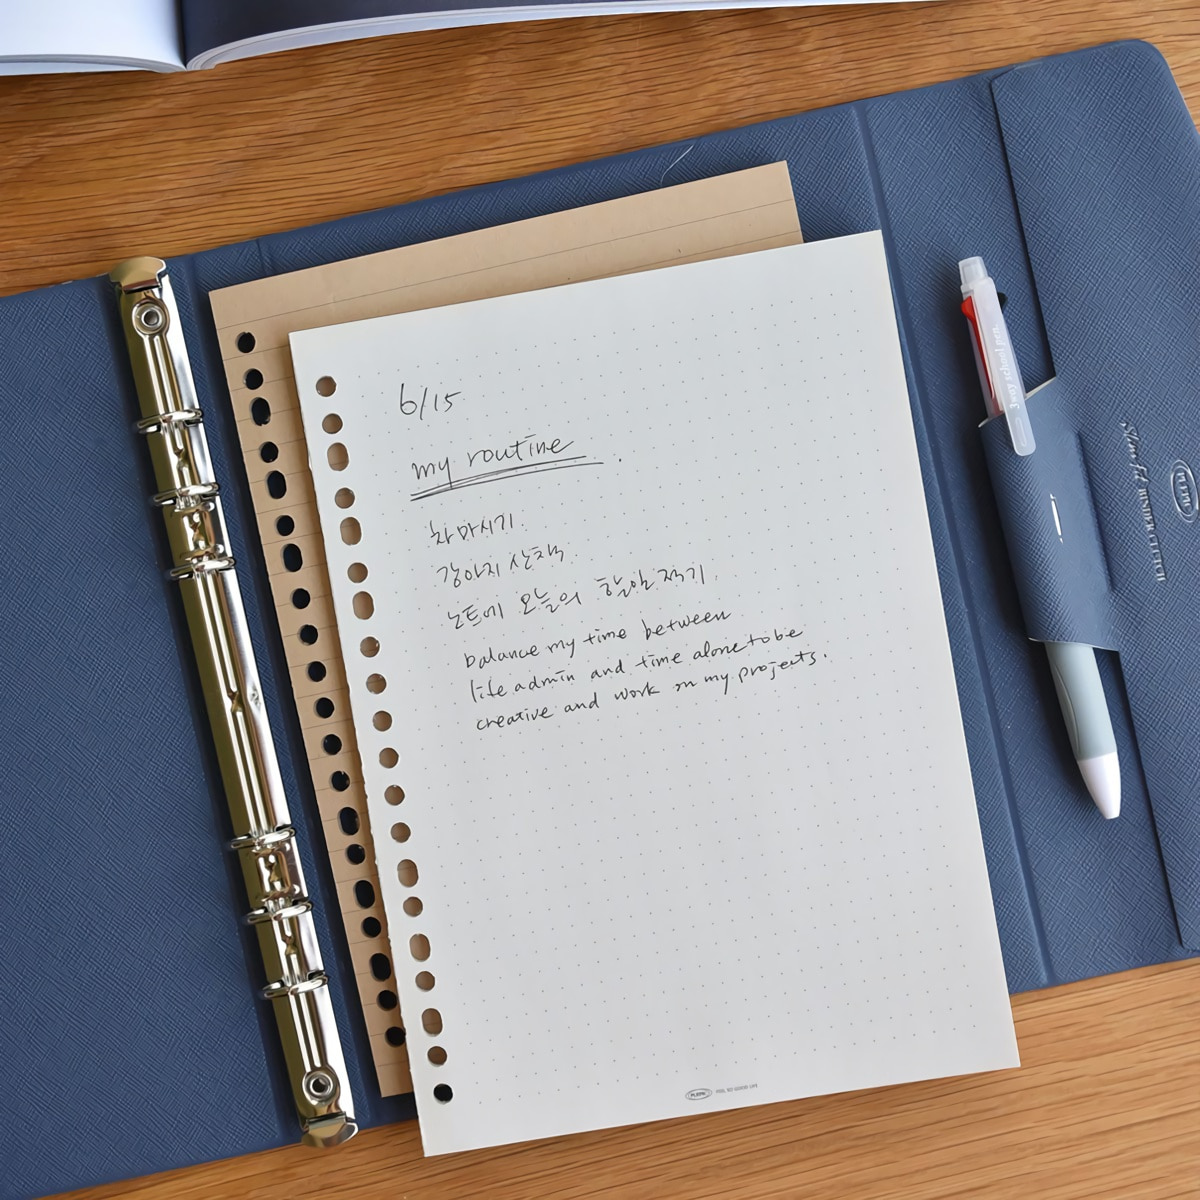 6/15
my routine.
차 마시기.
강아지 산책.
노트에 오늘의 할일 적기.
balance my time between
life admin and time alone to be
creative and work on my projects.
3way school pen.
PLEPIC